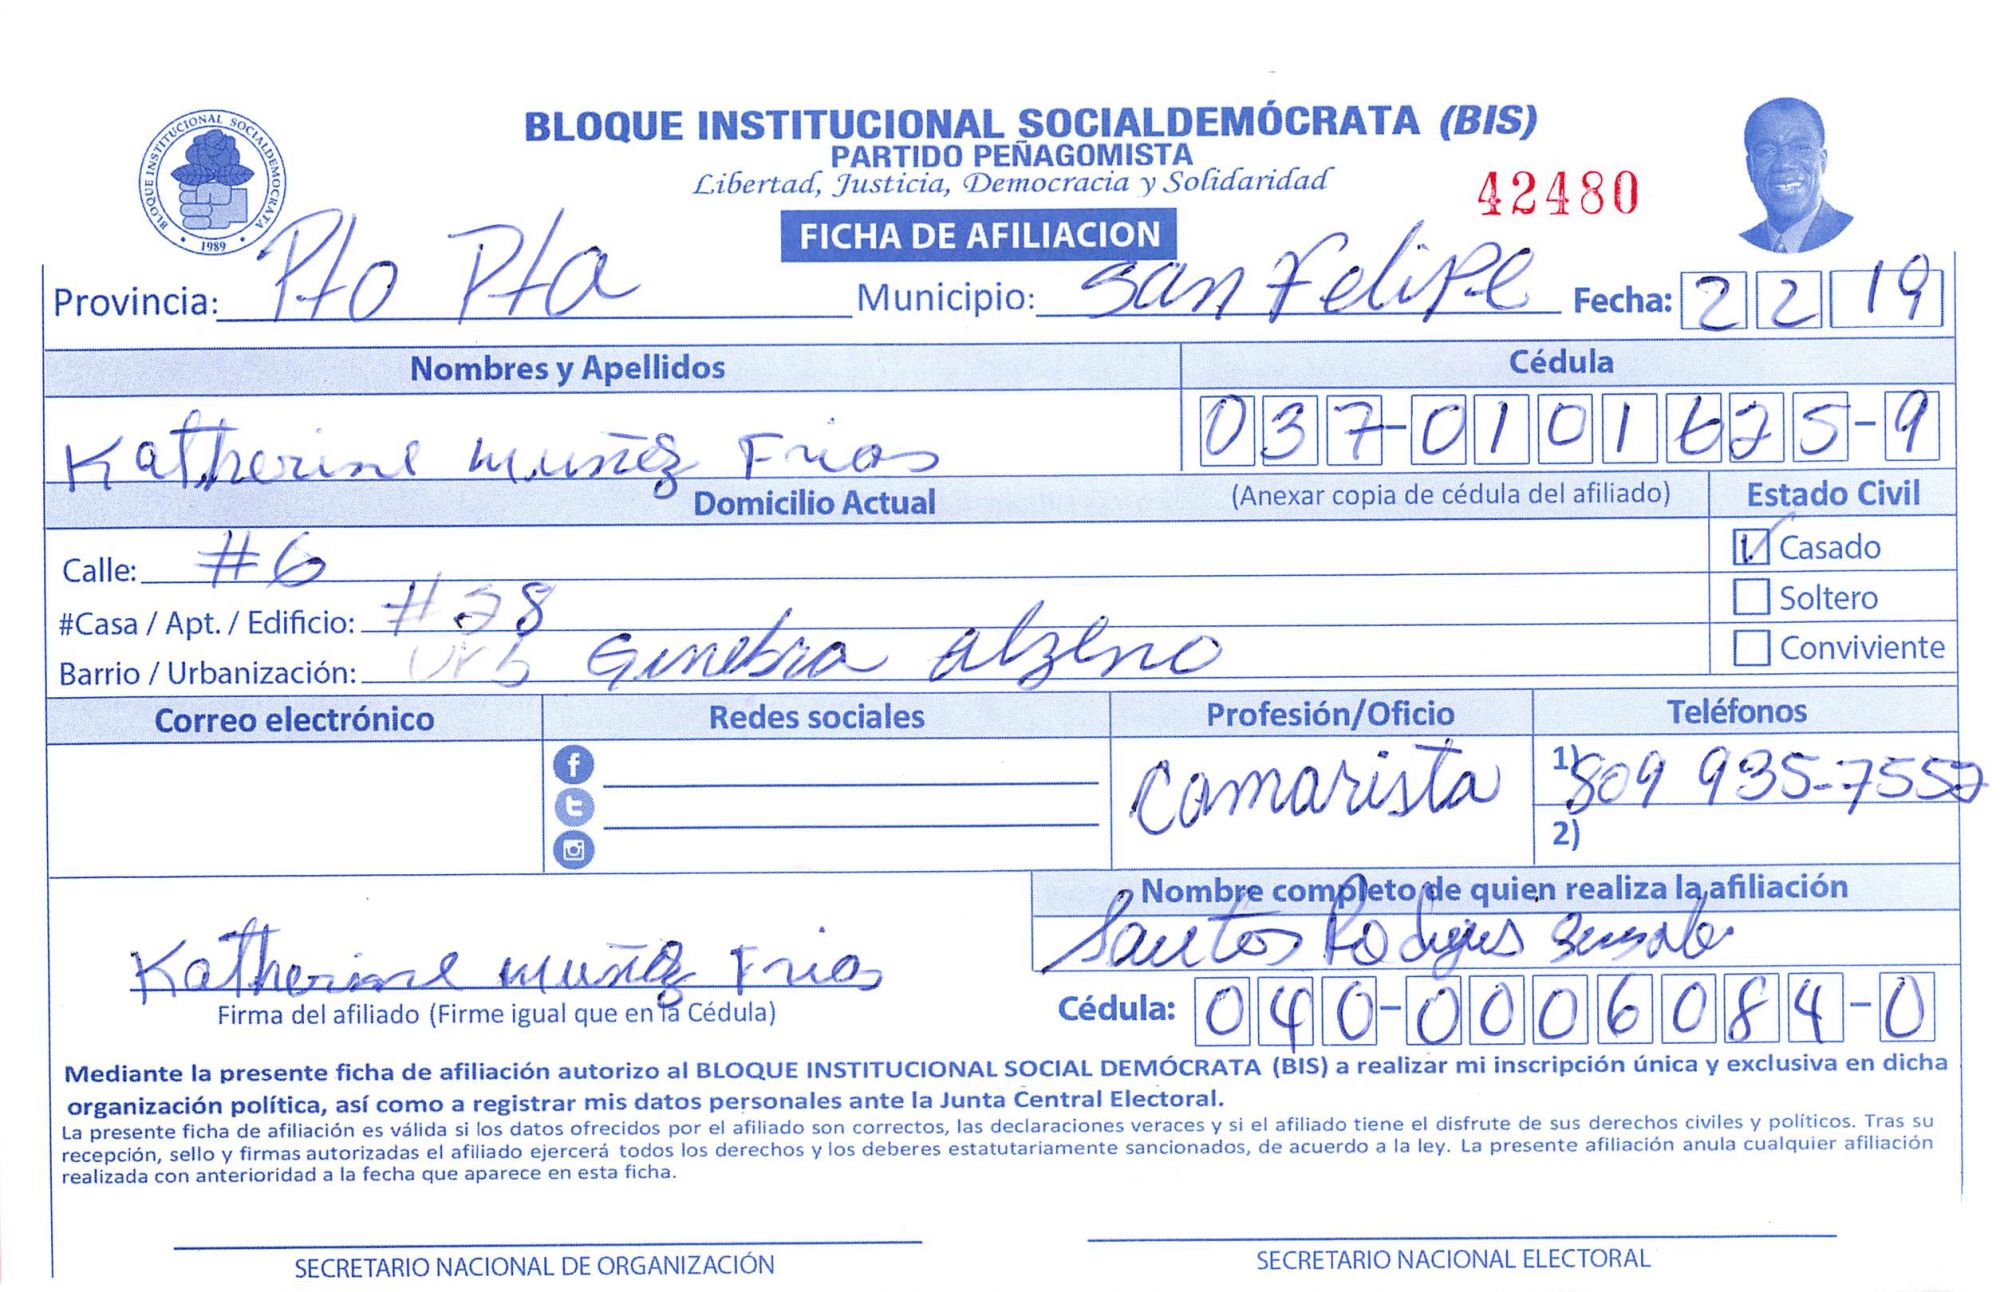 BLOQUE INSTITUCIONAL SOCIALDEMÓCRATA (BIS)
PARTIDO PEÑAGOMISTA
Libertad, Justicia, Democracia y Solidaridad
42480
BLOQUE INSTITUCIONAL SOCIALDEMOCRATA
1989
FICHA DE AFILIACION
Provincia: Pto Pta Municipio: San Felipe Fecha: 2 2 19
Nombres y Apellidos Cédula
Katherine muñoz Frias 037-0101625-9
Domicilio Actual (Anexar copia de cédula del afiliado) Estado Civil
Calle: #6 Casado
#Casa / Apt. / Edificio: #28 Soltero
Barrio / Urbanización: Urb Ginebra alzeno Conviviente
Correo electrónico Redes sociales Profesión/Oficio Teléfonos
Camarista 1) 809 935-7552
2)
Nombre completo de quien realiza la afiliación
Santos
Katherine muñoz Frias
Firma del afiliado (Firme igual que en la Cédula) Cédula: 040-0006084-0
Mediante la presente ficha de afiliación autorizo al BLOQUE INSTITUCIONAL SOCIAL DEMÓCRATA (BIS) a realizar mi inscripción única y exclusiva en dicha
organización política, así como a registrar mis datos personales ante la Junta Central Electoral.
La presente ficha de afiliación es válida si los datos ofrecidos por el afiliado son correctos, las declaraciones veraces y si el afiliado tiene el disfrute de sus derechos civiles y políticos. Tras su
recepción, sello y firmas autorizadas el afiliado ejercerá todos los derechos y los deberes estatutariamente sancionados, de acuerdo a la ley. La presente afiliación anula cualquier afiliación
realizada con anterioridad a la fecha que aparece en esta ficha.
SECRETARIO NACIONAL DE ORGANIZACIÓN SECRETARIO NACIONAL ELECTORAL